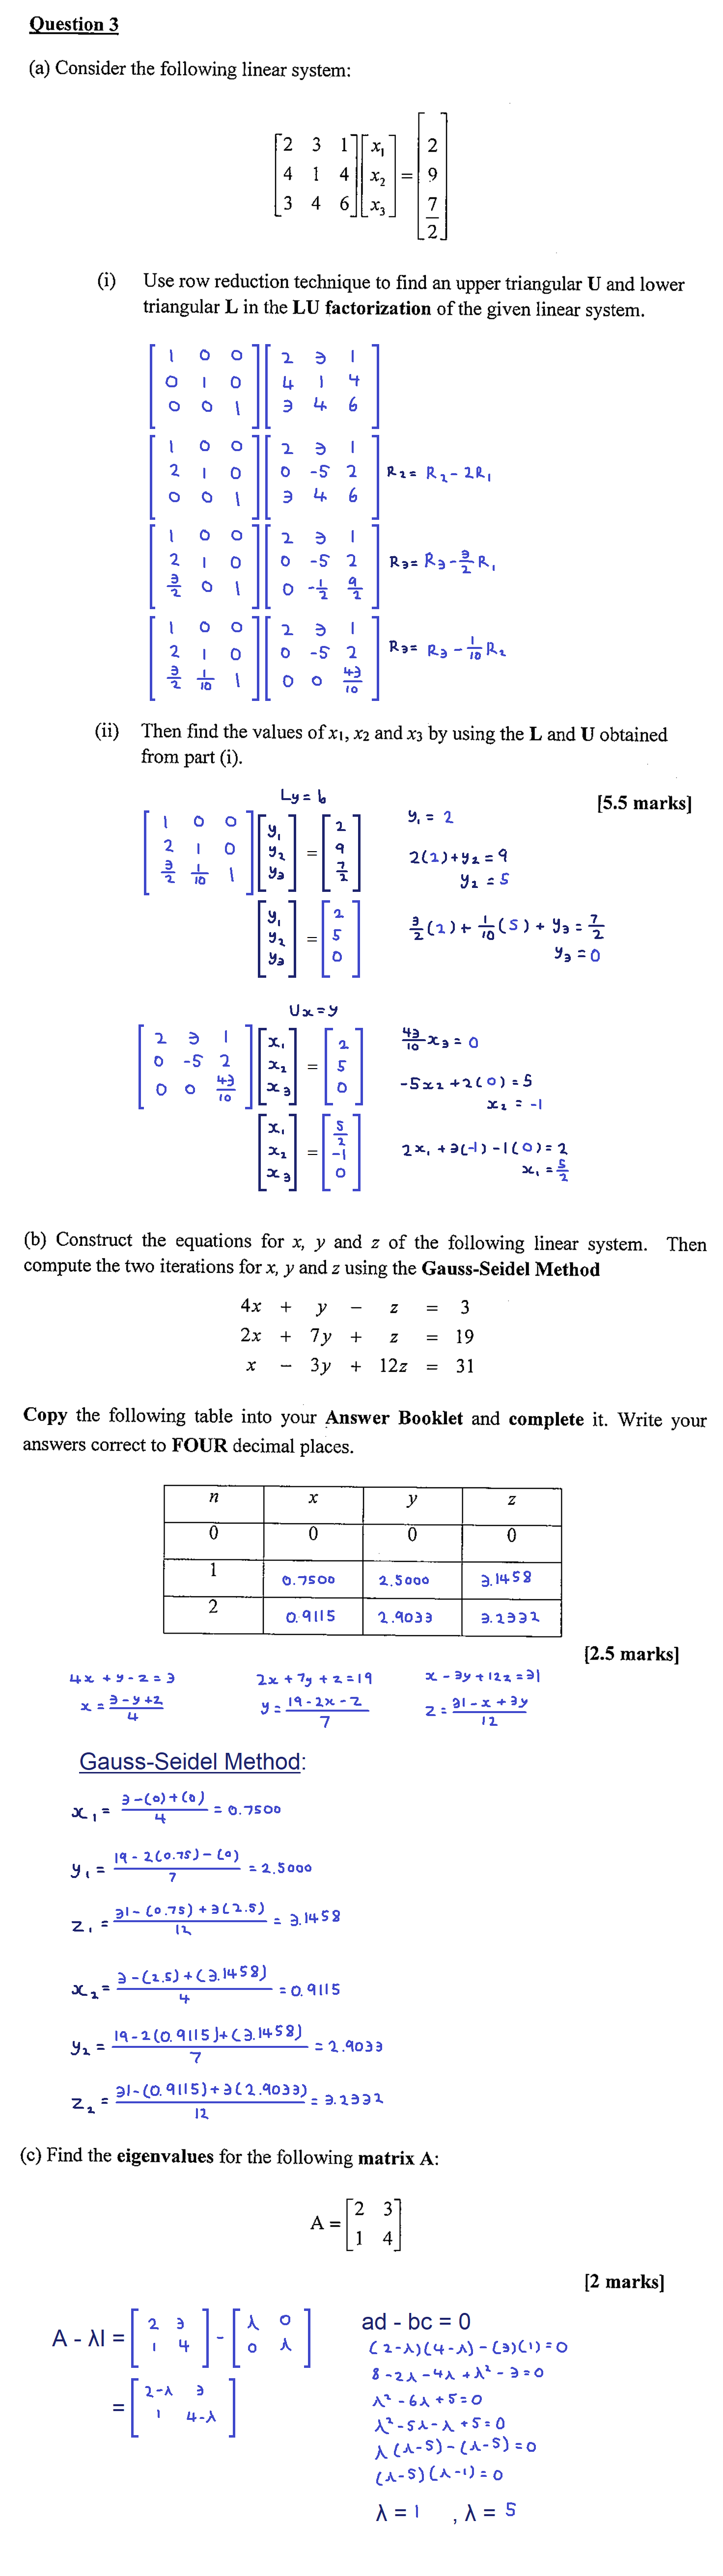 Question 3
(a) Consider the following linear system:
[2 3 1; 4 1 4; 3 4 6] [x₁; x₂; x₃] = [2; 9; 7/2]
(i) Use row reduction technique to find an upper triangular U and lower
triangular L in the LU factorization of the given linear system.
[1 0 0; 0 1 0; 0 0 1] [2 3 1; 4 1 4; 3 4 6]
[1 0 0; 2 1 0; 0 0 1] [2 3 1; 0 -5 2; 3 4 6] R₂ = R₂ - 2R₁
[1 0 0; 2 1 0; 3/2 0 1] [2 3 1; 0 -5 2; 0 -1/2 9/2] R₃ = R₃ - 3/2 R₁
[1 0 0; 2 1 0; 3/2 1/10 1] [2 3 1; 0 -5 2; 0 0 43/10] R₃ = R₃ - 1/10 R₂
(ii) Then find the values of x₁, x₂ and x₃ by using the L and U obtained
from part (i).
[5.5 marks]
Ly = b
[1 0 0; 2 1 0; 3/2 1/10 1] [y₁; y₂; y₃] = [2; 9; 7/2]
y₁ = 2
2(2) + y₂ = 9
y₂ = 5
[y₁; y₂; y₃] = [2; 5; 0]
3/2 (2) + 1/10 (5) + y₃ = 7/2
y₃ = 0
Ux = y
[2 3 1; 0 -5 2; 0 0 43/10] [x₁; x₂; x₃] = [2; 5; 0]
43/10 x₃ = 0
-5x₂ + 2(0) = 5
x₂ = -1
[x₁; x₂; x₃] = [5/2; -1; 0]
2x₁ + 3(-1) - 1(0) = 2
x₁ = 5/2
(b) Construct the equations for x, y and z of the following linear system. Then
compute the two iterations for x, y and z using the Gauss-Seidel Method
4x + y − z = 3
2x + 7y + z = 19
x − 3y + 12z = 31
Copy the following table into your Answer Booklet and complete it. Write your
answers correct to FOUR decimal places.
n x y z
0 0 0 0
1 0.7500 2.5000 3.1458
2 0.9115 2.9033 3.2332
[2.5 marks]
4x + y - z = 3 2x + 7y + z = 19 x - 3y + 12z = 31
x = (3 - y + z)/4 y = (19 - 2x - z)/7 z = (31 - x + 3y)/12
Gauss-Seidel Method:
x₁ = (3 - (0) + (0))/4 = 0.7500
y₁ = (19 - 2(0.75) - (0))/7 = 2.5000
z₁ = (31 - (0.75) + 3(2.5))/12 = 3.1458
x₂ = (3 - (2.5) + (3.1458))/4 = 0.9115
y₂ = (19 - 2(0.9115) + (3.1458))/7 = 2.9033
z₂ = (31 - (0.9115) + 3(2.9033))/12 = 3.2332
(c) Find the eigenvalues for the following matrix A:
A = [2 3; 1 4]
[2 marks]
A - λI = [2 3; 1 4] - [λ 0; 0 λ]
= [2-λ 3; 1 4-λ]
ad - bc = 0
(2-λ)(4-λ) - (3)(1) = 0
8 - 2λ - 4λ + λ² - 3 = 0
λ² - 6λ + 5 = 0
λ² - 5λ - λ + 5 = 0
λ(λ-5) - (λ-5) = 0
(λ-5)(λ-1) = 0
λ = 1 , λ = 5